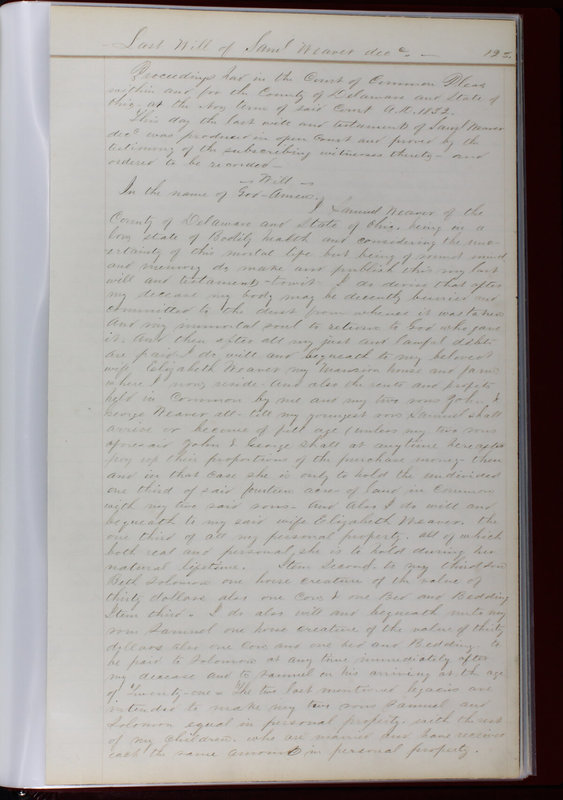 Last Will of Saml Weaver decd. 195.
Proceedings had in the Court of Common Pleas
within and for the County of Delaware and State of
Ohio, at the Nov term of said Court A.D. 1833.
This day the last will and testament of Saml Weaver
decd was produced in open Court and proved by the
testimony of the subscribing witnesses thereto and
ordered to be recorded
Will
In the name of God Amen. I
Samuel Weaver of the
County of Delaware and State of Ohio, being in a
low state of Bodily health and considering the unc
ertainty of this mortal life but being of sound mind
and memory do make and publish this my last
will and testament towit. I do devise that after
my decease my body may be decently burried and
committed to the dust from whence it was taken
And my immortal soul to return to God who gave
it. And then after all my just and lawful debts
are paid I do will and bequeath to my beloved
wife Elizabeth Weaver my Mansion house and farm
where I now reside. And also the rents and profits
held in Common by me and my two sons John &
George Weaver all till my youngest son Samuel shall
arrive or become of full age (unless my two sons
aforesaid John & George shall at any time hereafter
pay up their proportions of the purchase money then
and in that case she is only to hold the undivided
one third of said acres of land in Common
with my two said sons. And also I do will and
bequeath to my said wife Elizabeth Weaver. the
one third of all my personal property. all of which
both real and personal, she is to hold during her
natural lifetime. Item Second. to my third son
Seth Solomon one horse creature of the value of
thirty dollars also one Cow & one Bed and Bedding
Item third. I do also will and bequeath unto my
son Samuel one horse creature of the value of thirty
dollars also one Cow and one bed and Bedding. to
be paid to Solomon at any time immediately after
my decease and to Samuel on his arriving at the age
of Twenty-one. The two last mentioned legacies are
intended to make my two sons Samuel and
Solomon equal in personal property with the rest
of my children. who are married and have received
each the same amount in personal property.